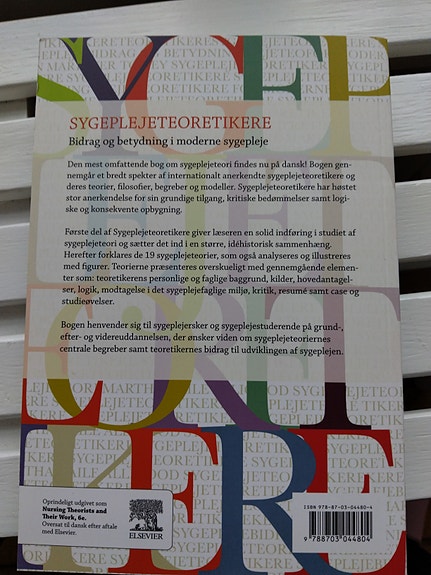 SYGEPLEJETEORETIKERE
Bidrag og betydning i moderne sygepleje
Den mest omfattende bog om sygeplejeteori findes nu på dansk! Bogen gen-
nemgår et bredt spekter af internationalt anerkendte sygeplejeteoretikere og
deres teorier, filosofier, begreber og modeller. Sygeplejeteoretikere har høstet
stor anerkendelse for sin grundige tilgang, kritiske bedømmelser samt logi-
ske og konsekvente opbygning.
Første del af Sygeplejeteoretikere giver læseren en solid indføring i studiet af
sygeplejeteori og sætter det ind i en større, idéhistorisk sammenhæng.
Herefter forklares de 19 sygeplejeteorier, som også analyseres og illustreres
med figurer. Teorierne præsenteres overskueligt med gennemgående elemen-
ter som: teoretikerens personlige og faglige baggrund, kilder, hovedantagel-
ser, logik, modtagelse i det sygeplejefaglige miljø, kritik, resumé samt case og
studieøvelser.
Bogen henvender sig til sygeplejersker og sygeplejestuderende på grund-,
efter- og videreuddannelsen, der ønsker viden om sygeplejeteoriernes
centrale begreber samt teoretikernes bidrag til udviklingen af sygeplejen.
Oprindeligt udgivet som
Nursing Theorists and
Their Work, 6e.
Oversat til dansk efter aftale
med Elsevier.
ELSEVIER
ISBN 978-87-03-04480-4
9 788703 044804